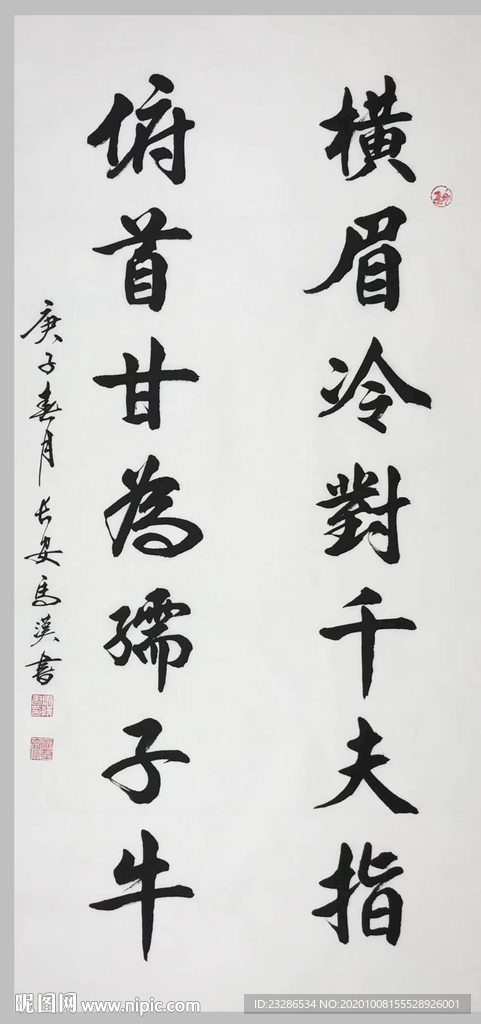 橫眉冷對千夫指
俯首甘為孺子牛
庚子春月長安馬漢書
昵图网 www.nipic.com
ID:23286534 NO:20201008155528926001